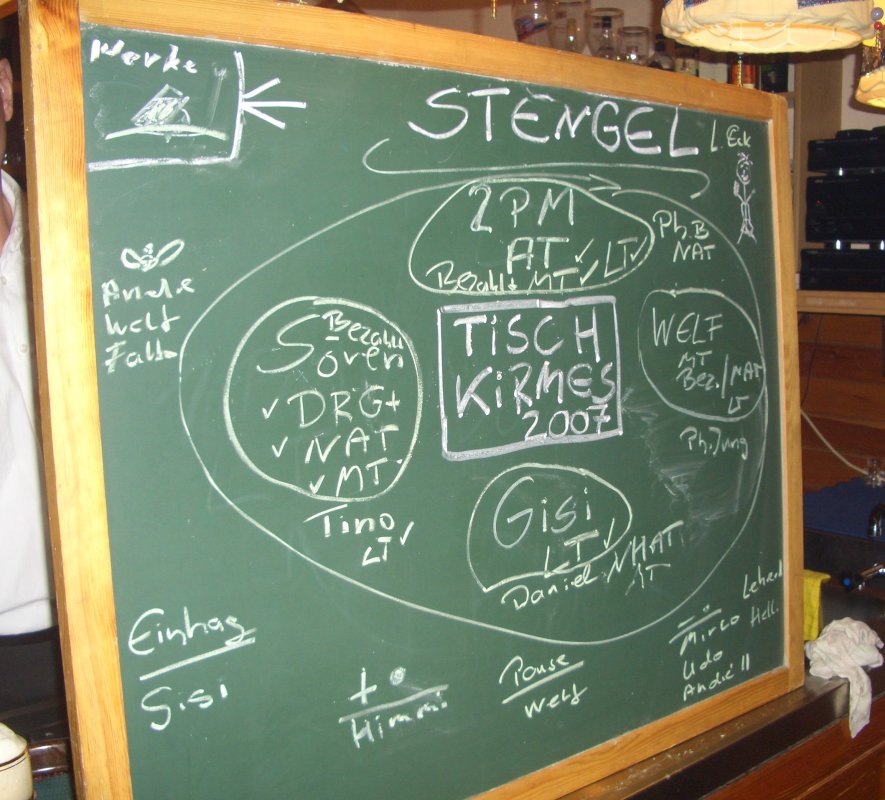 Werke
STENGEL
L. Eck
2PM
AT ✓ LT ✓
Bezahlt MT ✓
Ph.B
NAT
Andre
Welf
Bezahlt
Sören
✓ DRG+
✓ NAT
✓ MT
Tino
LT ✓
TiSCH
KiRMES
2007
WELF
MT
Bez./NAT
LT
Ph.Jung
Gisi
LT ✓
Daniel NHAT
AT
Einhag
Gisi
Himmi
Pause
Welf
Mirco
Udo
André II